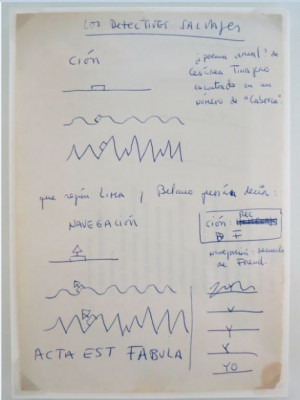 LOS DETECTIVES SALVAJES
CIÓN
¿poema visual? de
Cesárea Tinajero
encontrado en un
número de "Caborca"
que según LIMA y Belano decía:
NAVEGACIÓN
CIÓN:
de Freud.
ACTA EST FABULA
YO